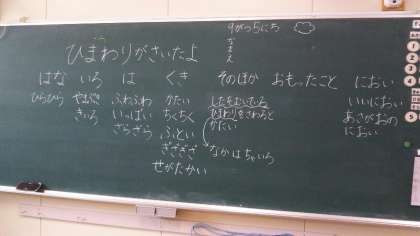 9がつ5にち
なまえ
ひまわりがさいたよ
はな いろ は くき そのほか おもったこと におい
ひらひら やまぶき ふわふわ かたい したをむいている いいにおい
きいろ いっぱい ちくちく ひまわりをさわると あさがおの
ざらざら ふとい かたい におい
ぎざぎざ なかはちゃいろ
せがたかい